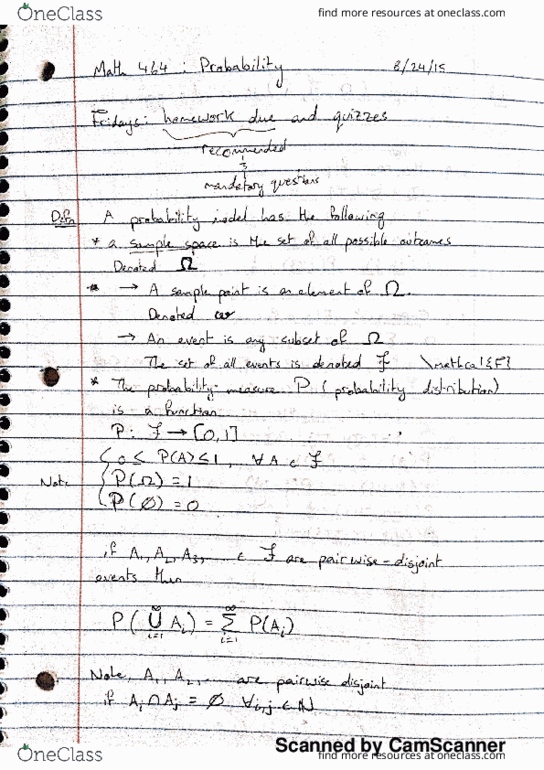 OneClass
find more resources at oneclass.com
Math 464 : Probability 8/24/15
Fridays: homework due and quizzes
recommended
3
mandatory questions
Defn A probability model has the following
* a sample space is the set of all possible outcomes
Denoted Ω
* → A sample point is an element of Ω.
Denoted ω
→ An event is any subset of Ω
The set of all events is denoted ℱ \mathcal{F}
* The probability measure P (probability distribution)
is a function
P: ℱ → [0,1]
{ 0 ≤ P(A) ≤ 1, ∀ A ∈ ℱ
Note { P(Ω) = 1
{ P(∅) = 0
if A₁, A₂, A₃, ∈ ℱ are pairwise-disjoint
events then
P( ∞∪i=1 Aᵢ) = ∞∑i=1 P(Aᵢ)
Note, A₁, A₂, ... are pairwise disjoint
if Aᵢ ∩ Aⱼ = ∅ ∀i,j ∈ ℕ
Scanned by CamScanner
OneClass
find more resources at oneclass.com